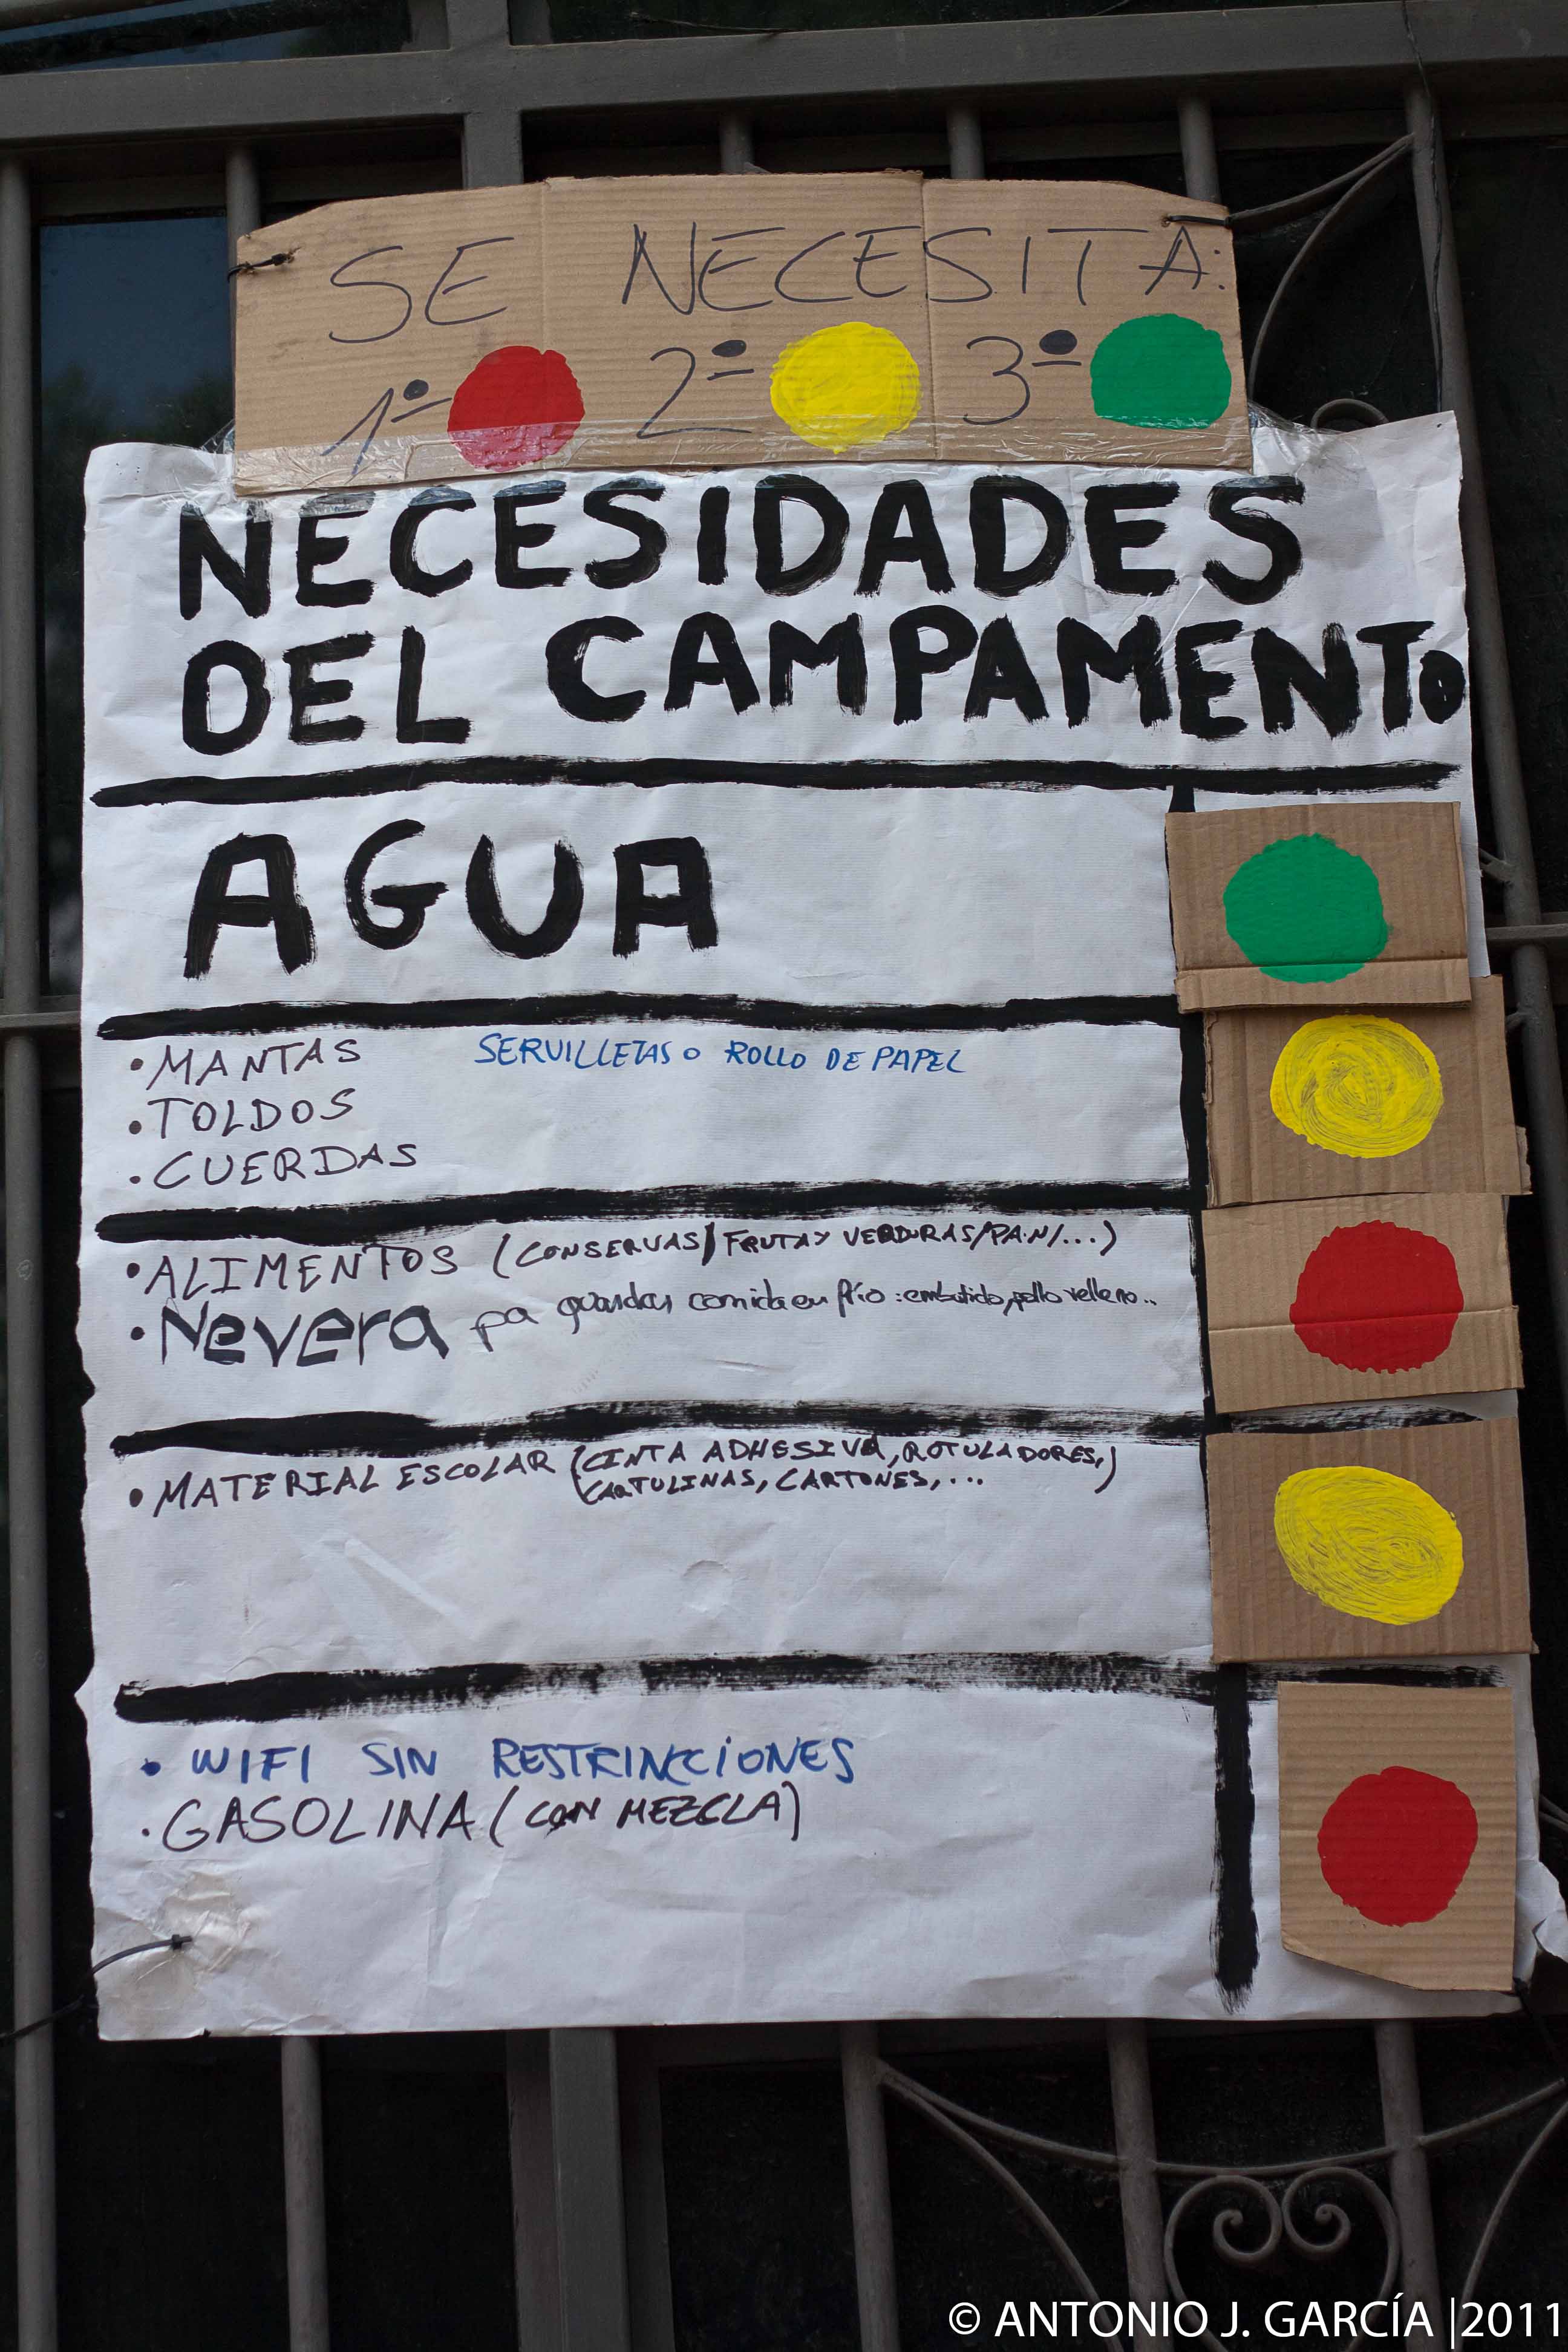 SE NECESITA:
1º 2º 3º
NECESIDADES
DEL CAMPAMENTO
AGUA
• MANTAS SERVILLETAS O ROLLO DE PAPEL
• TOLDOS
• CUERDAS
• ALIMENTOS (CONSERVAS/FRUTA Y VERDURAS/PAN/...)
• Nevera pa guardar comida en frío: embutido, pollo relleno...
• MATERIAL ESCOLAR (CINTA ADHESIVA, ROTULADORES,
CARTULINAS, CARTONES, ...)
• WIFI SIN RESTRINCCIONES
• GASOLINA (CON MEZCLA)
© ANTONIO J. GARCÍA |2011